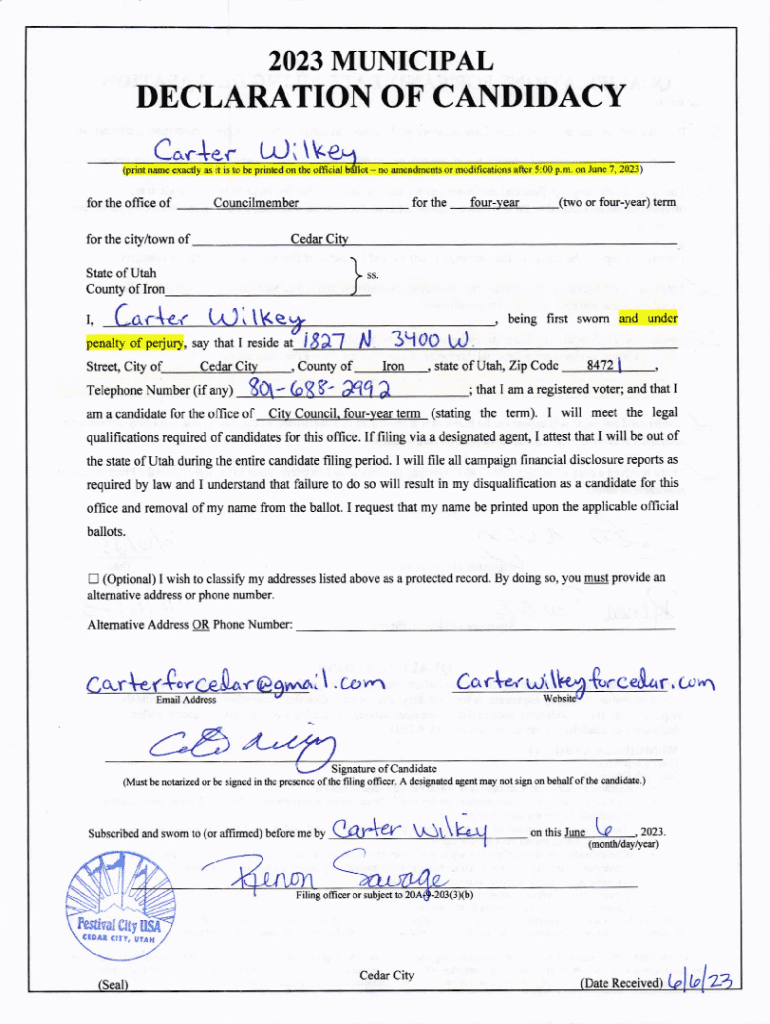 2023 MUNICIPAL
DECLARATION OF CANDIDACY
Carter Wilkey
(print name exactly as it is to be printed on the official ballot – no amendments or modifications after 5:00 p.m. on June 7, 2023)
for the office of Councilmember for the four-year (two or four-year) term
for the city/town of Cedar City
State of Utah } ss.
County of Iron
I, Carter Wilkey, being first sworn and under
penalty of perjury, say that I reside at 1827 N 3400 W.
Street, City of Cedar City, County of Iron, state of Utah, Zip Code 84721,
Telephone Number (if any) 801-688-2992; that I am a registered voter; and that I
am a candidate for the office of City Council, four-year term (stating the term). I will meet the legal
qualifications required of candidates for this office. If filing via a designated agent, I attest that I will be out of
the state of Utah during the entire candidate filing period. I will file all campaign financial disclosure reports as
required by law and I understand that failure to do so will result in my disqualification as a candidate for this
office and removal of my name from the ballot. I request that my name be printed upon the applicable official
ballots.
☐ (Optional) I wish to classify my addresses listed above as a protected record. By doing so, you must provide an
alternative address or phone number.
Alternative Address OR Phone Number:
carterforcedar@gmail.com Carterwilkeyforcedar.com
Email Address Website
Signature of Candidate
(Must be notarized or be signed in the presence of the filing officer. A designated agent may not sign on behalf of the candidate.)
Subscribed and sworn to (or affirmed) before me by Carter Wilkey on this June 6, 2023.
(month/day/year)
Renon Savage
Filing officer or subject to 20A-9-203(3)(b)
Festival City USA
CEDAR CITY, UTAH
Cedar City
(Seal) (Date Received) 6/6/23